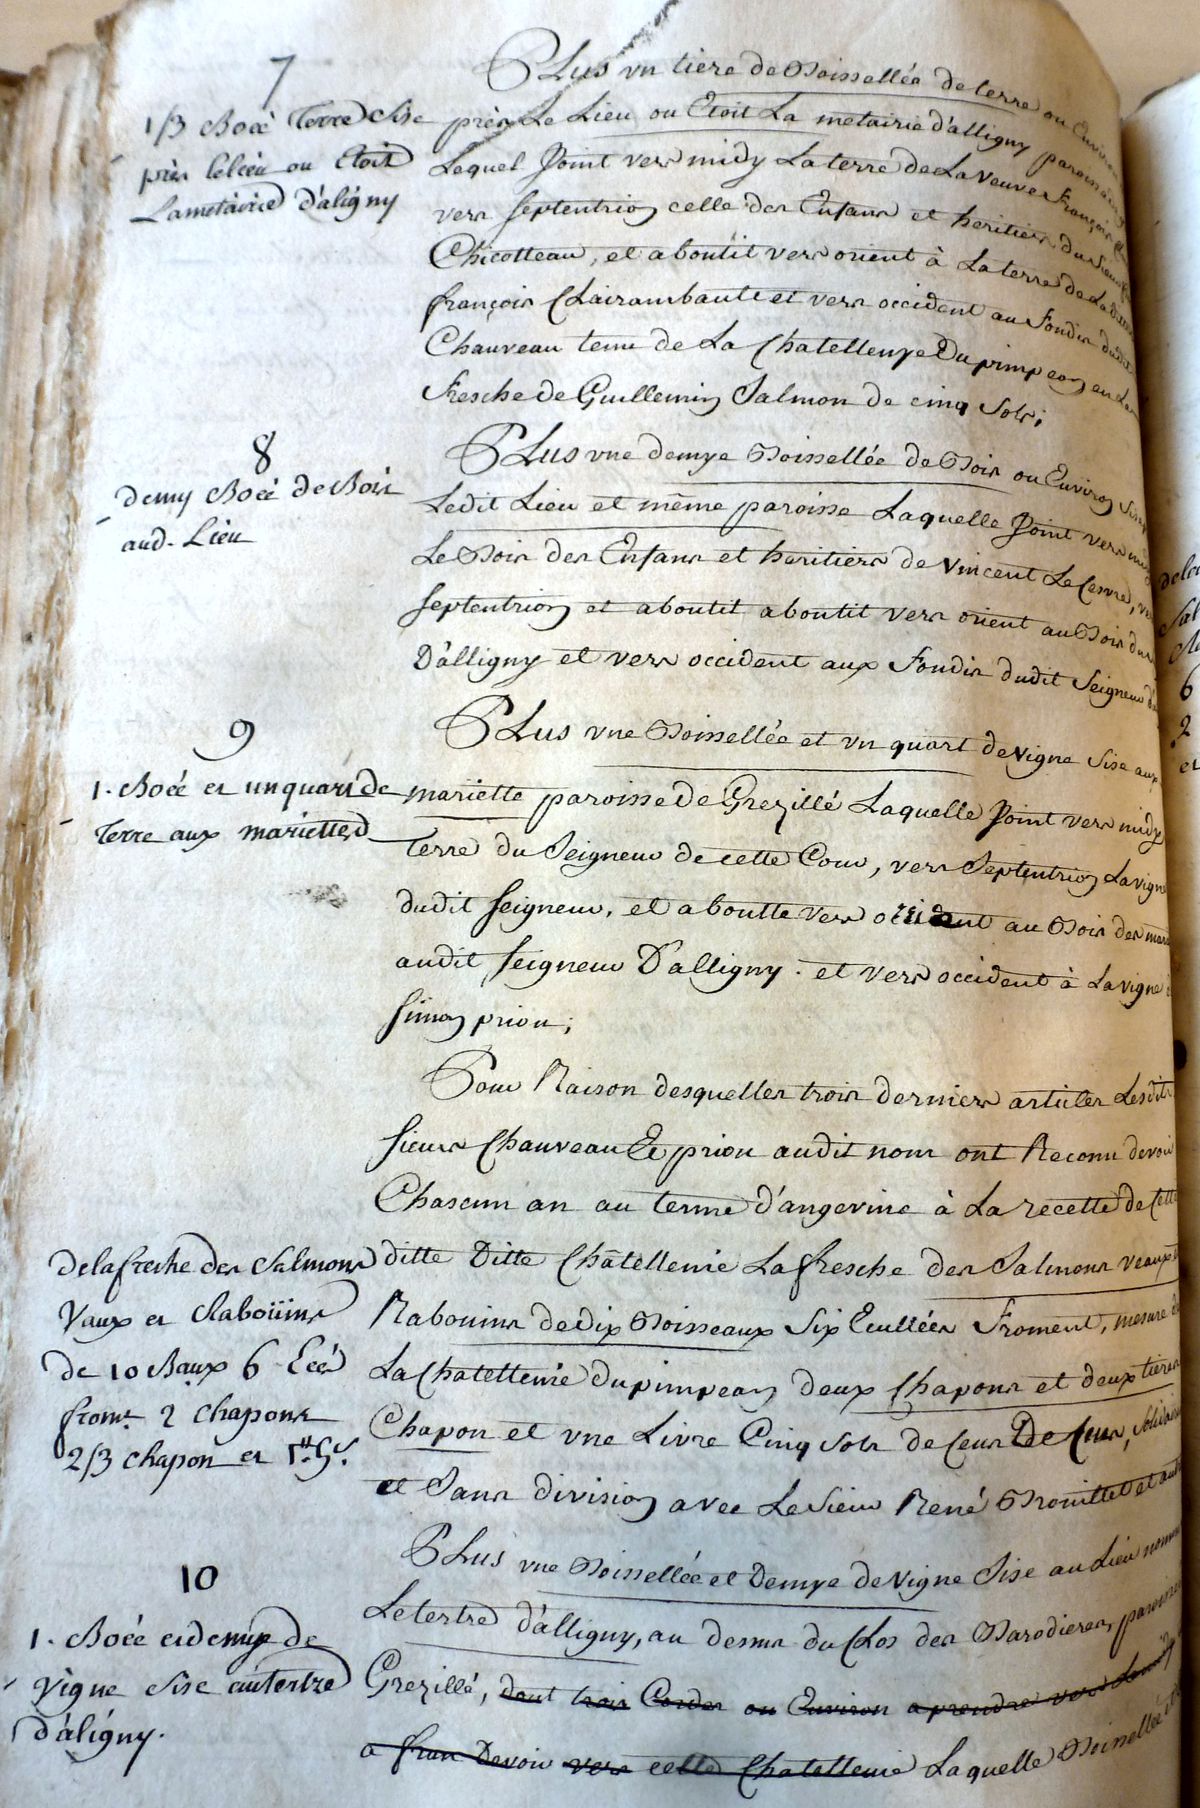 7
1/3 Boée Terre Sise
près le lieu ou Etoit
La metairie d'aligny
PLus vn tiers de Boissellée de terre ou Environ
près Le Lieu ou Etoit La metairie d'alligny paroisse
Lequel Joint vers midy La terre de La veuve François
vers septentrion celle des Enfans et heritiers du Sieur
Chicotteau, et aboutit vers orient à La terre de La ditte
françois Clairambault et vers occident au Fondis dudit
Chauveau tenu de La Chatellenye Du pimpean en La
fresche de Guillemin Salmon de cinq Sols;
8
demy Boée de Bois
aud. Lieu
PLus vne demye Boissellée de Bois ou Environ Sise
Ledit Lieu et même paroisse Laquelle Joint vers midy
Le Bois des Enfans et heritiers de vincent Le Cesvre,
septentrion et aboutit aboutit vers orient au Bois du
D'alligny et vers occident aux Fondis dudit Seigneur
9
1. Boée et un quart de
terre aux mariettes
PLus vne Boissellée et vn quart de vigne Sise aux
mariette paroisse de Grezillé Laquelle Joint vers midy
terre du Seigneur de cette Cour, vers Septentrion La vigne
dudit seigneur, et aboutte vers orient au Bois des
audit seigneur D'alligny. et vers occident à La vigne
simon priou;
Pour Raison desquelles trois derniers articles Lesdits
sieurs Chauveau Et priou audit nom ont Reconnu devoir
Chascun an au terme d'angevine à La recette de Cette
de la freche des Salmons
Vaux et Raboüins
de 10 Baux 6 Ecées
from. 2 chapons
2/3 chapon et 1ᵗᵗ 5ˢ.
ditte Ditte Châtellenie La fresche des Salmons veaux
Rabouins de dix Boisseaux Six Ecullées Froment, mesure
La Chatellenie du pimpean deux Chapons et deux tiers
Chapon et vne Livre Cinq sols de Cens
et Sans division avec Le Sieur René Brouillet et autres
10
1. Boée et demye de
Vigne Sise au tertre
d'aligny.
PLus vne Boissellée et Demye de vigne Sise au Lieu nommé
Le tertre d'alligny, au dessus du Clos des Barodieres, paroisse
Grezillé, dont trois Cordes ou Environ a prendre vers
a franc Devoir vers cette Chatellenie Laquelle Boissellée